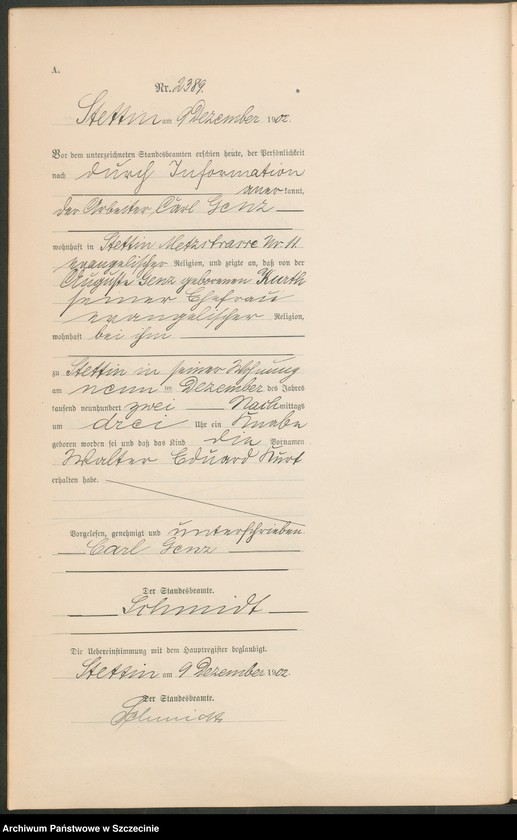 A.
Nr. 2389.
Stettin am 9 Dezember 1902.
Vor dem unterzeichneten Standesbeamten erschien heute, der Persönlichkeit
nach durch Information
aner kannt,
der Arbeiter Carl Genz
wohnhaft in Stettin Metzstrasse Nr. 11
evangelischer Religion, und zeigte an, daß von der
Auguste Genz geborenen Kurth
seiner Ehefrau
evangelischer Religion,
wohnhaft bei ihm
zu Stettin in seiner Wohnung
am neun ten Dezember des Jahres
tausend neunhundert zwei Nach mittags
um drei Uhr ein Knabe
geboren worden sei und daß das Kind die Vornamen
Walter Eduard Kurt
erhalten habe.
Vorgelesen, genehmigt und unterschrieben
Carl Genz
Der Standesbeamte.
Schmidt
Die Uebereinstimmung mit dem Hauptregister beglaubigt.
Stettin am 9 Dezember 1902
Der Standesbeamte.
Schmidt
Archiwum Państwowe w Szczecinie